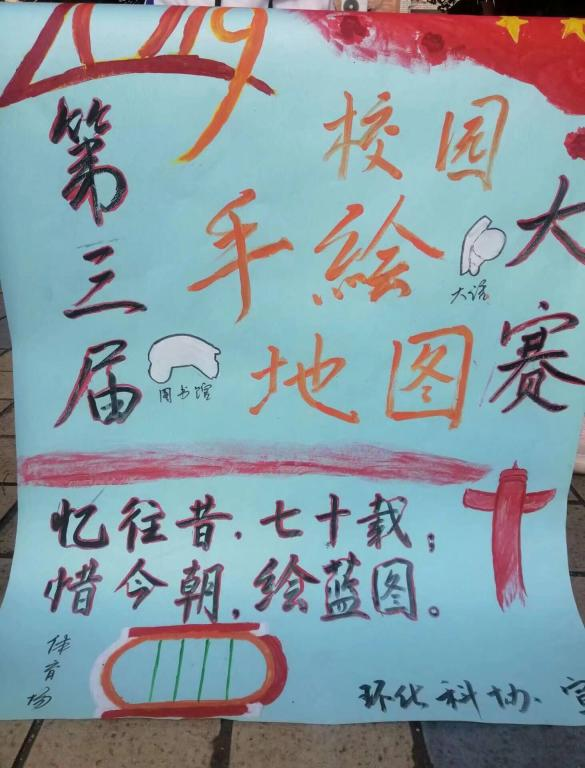 2019
第三届
校园
手绘
地图
大赛
大活
图书馆
忆往昔，七十载；
惜今朝，绘蓝图。
体育场
环化科协·宣